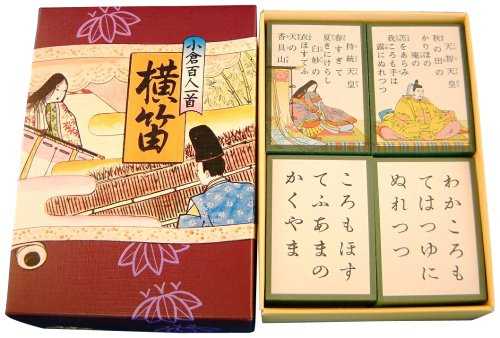 小倉百人一首
横笛
天智天皇
秋の田の
かりほの
庵の
苫をあらみ
我ころもでは
露にぬれつつ
持統天皇
春すぎて
夏きにけらし
白妙の
衣ほすてふ
天の
香具山
わかころも
てはつゆに
ぬれつつ
ころもほす
てふあまの
かくやま